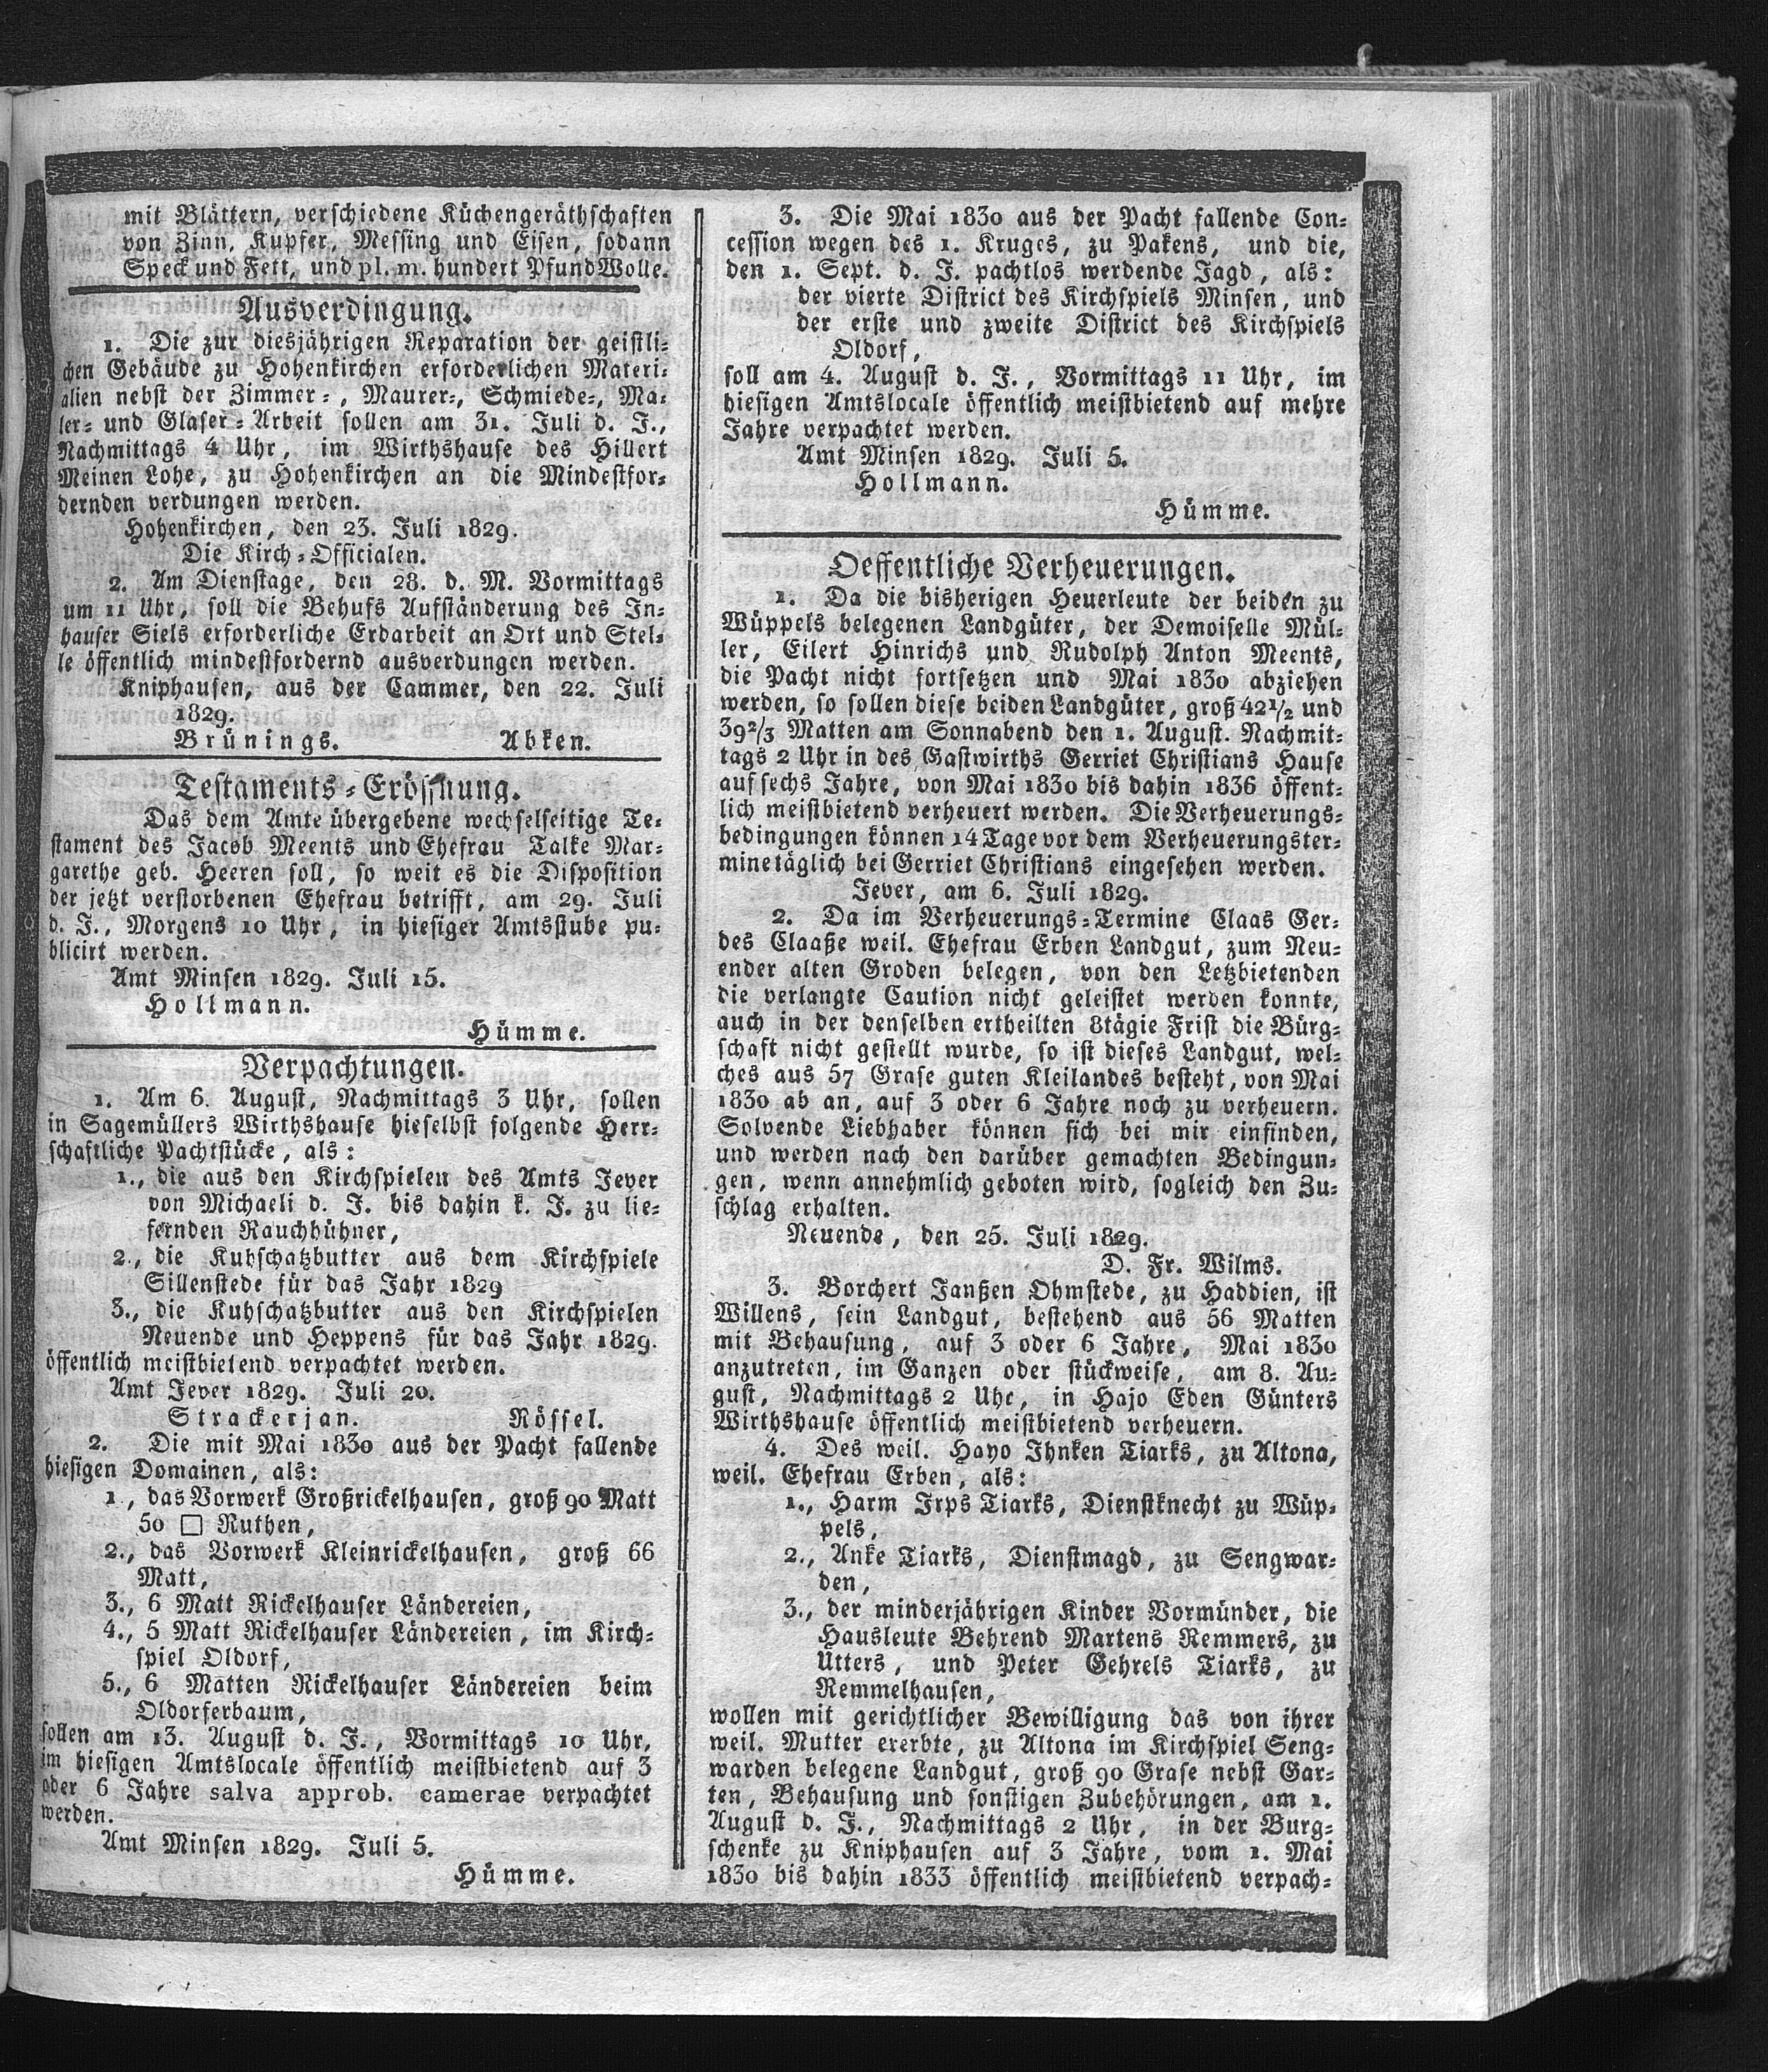 mit Blättern, verschiedene Küchengeräthschaften
von Zinn, Kupfer, Messing und Eisen, sodann
Speck und Fett, und pl. m. hundert Pfund Wolle.
Ausverdingung.
1. Die zur diesjährigen Reparation der geistli-
chen Gebäude zu Hohenkirchen erforderlichen Materi-
alien nebst der Zimmer-, Maurer-, Schmiede-, Ma-
ler- und Glaser-Arbeit sollen am 31. Juli d. J.,
Nachmittags 4 Uhr, im Wirthshause des Hillert
Meinen Lohe, zu Hohenkirchen an die Mindestfor-
dernden verdungen werden.
Hohenkirchen, den 23. Juli 1829.
Die Kirch-Officialen.
2. Am Dienstage, den 28. d. M. Vormittags
um 11 Uhr, soll die Behufs Aufständerung des In-
hauser Siels erforderliche Erdarbeit an Ort und Stel-
le öffentlich mindestfordernd ausverdungen werden.
Kniphausen, aus der Cammer, den 22. Juli
1829.
Brünings. Abken.
Testaments-Eröffnung.
Das dem Amte übergebene wechselseitige Te-
stament des Jacob Meents und Ehefrau Talke Mar-
garethe geb. Heeren soll, so weit es die Disposition
der jetzt verstorbenen Ehefrau betrifft, am 29. Juli
d. J., Morgens 10 Uhr, in hiesiger Amtsstube pu-
blicirt werden.
Amt Minsen 1829. Juli 15.
Hollmann.
Hümme.
Verpachtungen.
1. Am 6. August, Nachmittags 3 Uhr, sollen
in Sagemüllers Wirthshause hieselbst folgende Herr-
schaftliche Pachtstücke, als:
1., die aus den Kirchspielen des Amts Jever
von Michaeli d. J. bis dahin k. J. zu lie-
fernden Rauchhühner,
2., die Kuhschatzbutter aus dem Kirchspiele
Sillenstede für das Jahr 1829
3., die Kuhschatzbutter aus den Kirchspielen
Neuende und Heppens für das Jahr 1829.
öffentlich meistbietend verpachtet werden.
Amt Jever 1829. Juli 20.
Strackerjan. Rössel.
2. Die mit Mai 1830 aus der Pacht fallende
hiesigen Domainen, als:
1., das Vorwerk Großrickelhausen, groß 90 Matt
50 □ Ruthen,
2., das Vorwerk Kleinrickelhausen, groß 66
Matt,
3., 6 Matt Rickelhauser Ländereien,
4., 5 Matt Rickelhauser Ländereien, im Kirch-
spiel Oldorf,
5., 6 Matten Rickelhauser Ländereien beim
Oldorferbaum,
sollen am 13. August d. J., Vormittags 10 Uhr,
im hiesigen Amtslocale öffentlich meistbietend auf 3
oder 6 Jahre salva approb. camerae verpachtet
werden.
Amt Minsen 1829. Juli 5.
Hümme.
3. Die Mai 1830 aus der Pacht fallende Con-
cession wegen des 1. Kruges, zu Pakens, und die,
den 1. Sept. d. J. pachtlos werdende Jagd, als:
der vierte District des Kirchspiels Minsen, und
der erste und zweite District des Kirchspiels
Oldorf,
soll am 4. August d. J., Vormittags 11 Uhr, im
hiesigen Amtslocale öffentlich meistbietend auf mehre
Jahre verpachtet werden.
Amt Minsen 1829. Juli 5.
Hollmann.
Hümme.
Oeffentliche Verheuerungen.
1. Da die bisherigen Heuerleute der beiden zu
Wüppels belegenen Landgüter, der Demoiselle Mül-
ler, Eilert Hinrichs und Rudolph Anton Meents,
die Pacht nicht fortsetzen und Mai 1830 abziehen
werden, so sollen diese beiden Landgüter, groß 42 1/2 und
39 2/3 Matten am Sonnabend den 1. August. Nachmit-
tags 2 Uhr in des Gastwirths Gerriet Christians Hause
auf sechs Jahre, von Mai 1830 bis dahin 1836 öffent-
lich meistbietend verheuert werden. Die Verheuerungs-
bedingungen können 14 Tage vor dem Verheuerungster-
mine täglich bei Gerriet Christians eingesehen werden.
Jever, am 6. Juli 1829.
2. Da im Verheuerungs-Termine Claas Ger-
des Claaße weil. Ehefrau Erben Landgut, zum Neu-
ender alten Groden belegen, von den Letzbietenden
die verlangte Caution nicht geleistet werden konnte,
auch in der denselben ertheilten 8tägie Frist die Bürg-
schaft nicht gestellt wurde, so ist dieses Landgut, wel-
ches aus 57 Grase guten Kleilandes besteht, von Mai
1830 ab an, auf 3 oder 6 Jahre noch zu verheuern.
Solvende Liebhaber können sich bei mir einfinden,
und werden nach den darüber gemachten Bedingun-
gen, wenn annehmlich geboten wird, sogleich den Zu-
schlag erhalten.
Neuende, den 25. Juli 1829.
D. Fr. Wilms.
3. Borchert Janßen Ohmstede, zu Haddien, ist
Willens, sein Landgut, bestehend aus 56 Matten
mit Behausung, auf 3 oder 6 Jahre, Mai 1830
anzutreten, im Ganzen oder stückweise, am 8. Au-
gust, Nachmittags 2 Uhr, in Hajo Eden Günters
Wirthshause öffentlich meistbietend verheuern.
4. Des weil. Hayo Ihnken Tiarks, zu Altona,
weil. Ehefrau Erben, als:
1., Harm Irps Tiarks, Dienstknecht zu Wüp-
pels,
2., Anke Tiarks, Dienstmagd, zu Sengwar-
den,
3., der minderjährigen Kinder Vormünder, die
Hausleute Behrend Martens Remmers, zu
Utters, und Peter Gehrels Tiarks, zu
Remmelhausen,
wollen mit gerichtlicher Bewilligung das von ihrer
weil. Mutter ererbte, zu Altona im Kirchspiel Seng-
warden belegene Landgut, groß 90 Grase nebst Gar-
ten, Behausung und sonstigen Zubehörungen, am 1.
August d. J., Nachmittags 2 Uhr, in der Burg-
schenke zu Kniphausen auf 3 Jahre, vom 1. Mai
1830 bis dahin 1833 öffentlich meistbietend verpach-